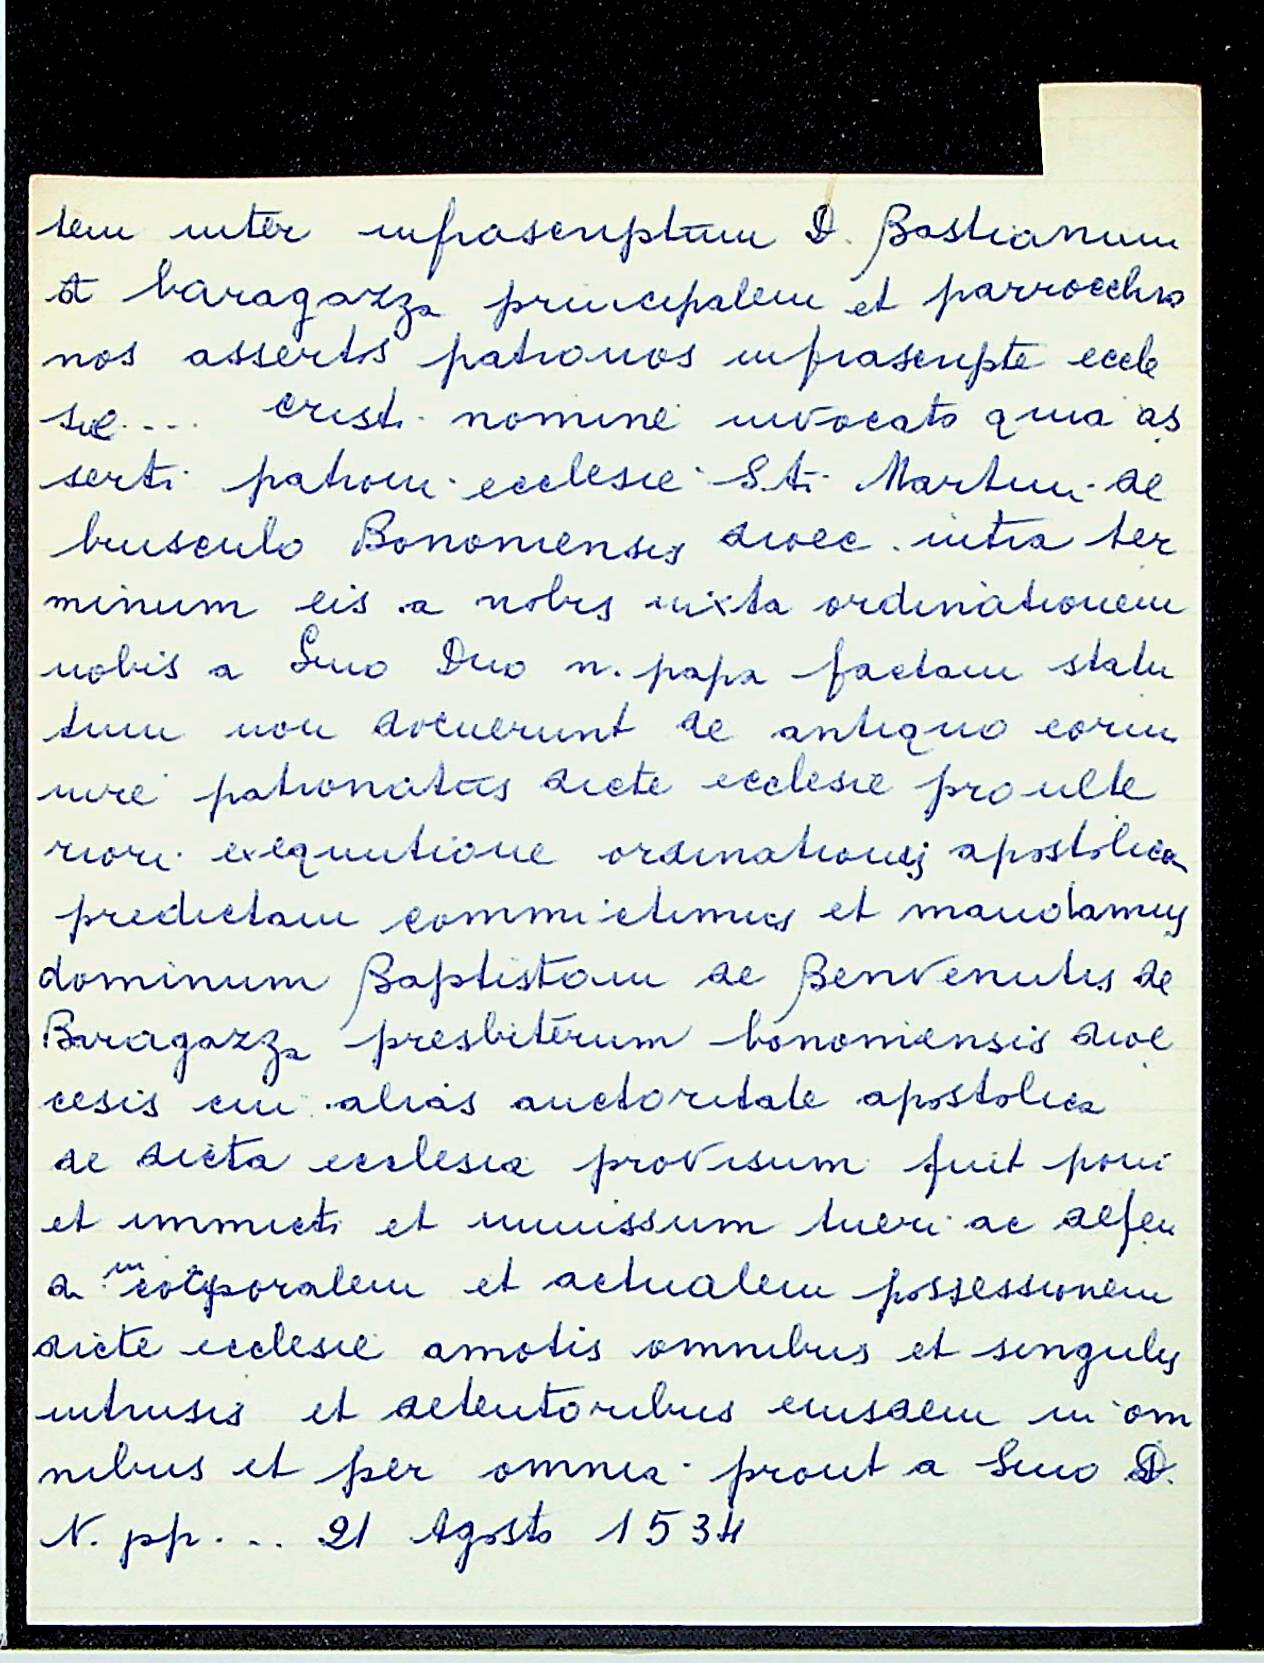 tem inter infrascriptum D. Bastianum
de baragazza principalem et parrocchia
nos assertos patronos infrascripte eccle
sie... cristi nomine invocato quia as
serti patroni ecclesie Sti Martini de
brusculo Bononiensis dioec. intra ter
minum eis a nobis iuxta ordinationem
nobis a Smo Dno n. papa factam statu
tum non docuerunt de antiquo eorum
iure patronatus dicte ecclesie pro ulte
riori exequutione ordinationis apostolica
predictam commictimus et mandamus
dominum Baptistam de Benvenutis de
Baragazza presbiterum bononiensis dioe
cesis cui alias auctoritate apostolica
de dicta ecclesia provisum fuit poni
et immicti et immissum tueri ac defen
di in corporalem et actualem possessionem
dicte ecclesie amotis omnibus et singulis
intrusis et detentoribus eiusdem in om
nibus et per omnia prout a Smo D.
N. pp... 21 Agosto 1534